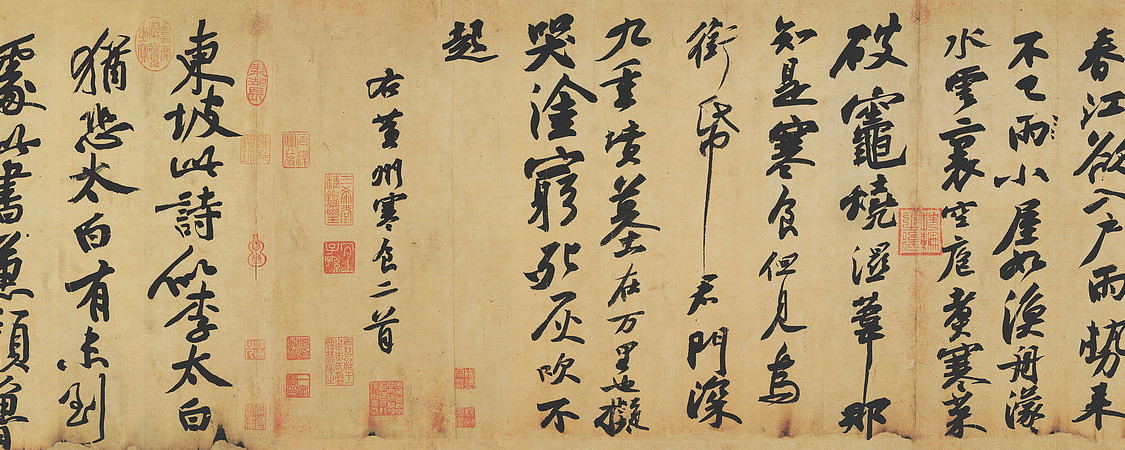 春江欲入戶雨勢來
不已雨小屋如漁舟濛
水雲裏空庖煑寒菜
破竈燒濕葦那
知是寒食但見烏
銜帋君門深
九重墳墓在万里也擬
哭塗窮死灰吹不
起
右黃州寒食二首
東坡此詩似李太白
猶恐太白有未到
處此書兼顏魯